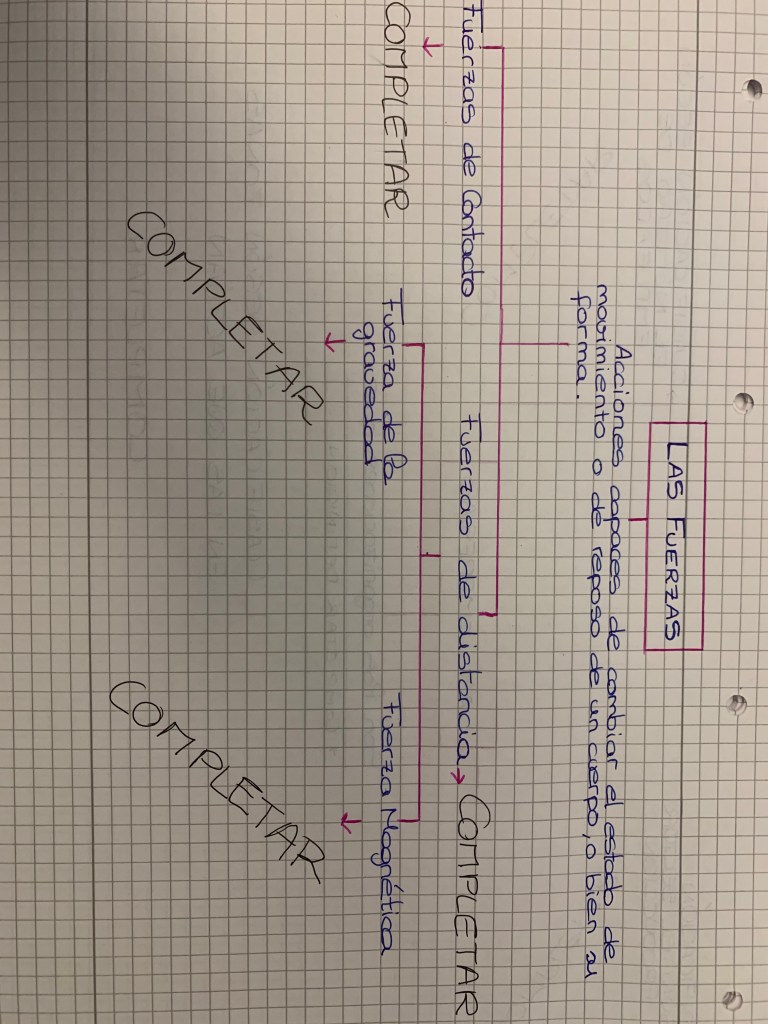 LAS FUERZAS
Acciones capaces de cambiar el estado de
movimiento o de reposo de un cuerpo, o bien su
forma.
Fuerzas de Contacto
COMPLETAR
Fuerzas de distancia → COMPLETAR
Fuerza de la
gravedad
COMPLETAR
Fuerza Magnética
COMPLETAR